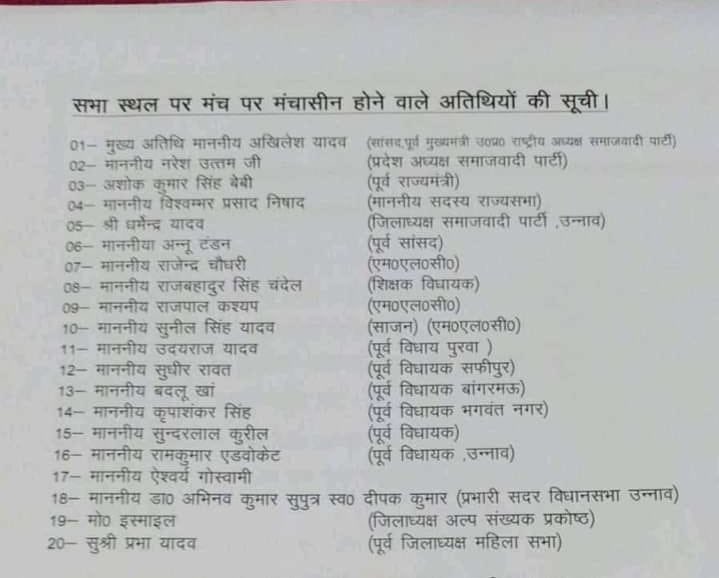 सभा स्थल पर मंच पर मंचासीन होने वाले अतिथियों की सूची।
01– मुख्य अतिथि माननीय अखिलेश यादव (सांसद,पूर्व मुख्यमंत्री उ०प्र० राष्ट्रीय अध्यक्ष समाजवादी पार्टी)
02– माननीय नरेश उत्तम जी (प्रदेश अध्यक्ष समाजवादी पार्टी)
03– अशोक कुमार सिंह बेबी (पूर्व राज्यमंत्री)
04– माननीय विश्वम्भर प्रसाद निषाद (माननीय सदस्य राज्यसभा)
05– श्री धर्मेन्द्र यादव (जिलाध्यक्ष समाजवादी पार्टी ,उन्नाव)
06– माननीया अन्नू टंडन (पूर्व सांसद)
07– माननीय राजेन्द्र चौधरी (एम०एल०सी०)
08– माननीय राजबहादुर सिंह चंदेल (शिक्षक विधायक)
09– माननीय राजपाल कश्यप (एम०एल०सी०)
10– माननीय सुनील सिंह यादव (साजन) (एम०एल०सी०)
11– माननीय उदयराज यादव (पूर्व विधाय पुरवा )
12– माननीय सुधीर रावत (पूर्व विधायक सफीपुर)
13– माननीय बदलू खां (पूर्व विधायक बांगरमऊ)
14– माननीय कृपाशंकर सिंह (पूर्व विधायक भगवंत नगर)
15– माननीय सुन्दरलाल कुरील (पूर्व विधायक)
16– माननीय रामकुमार एडवोकेट (पूर्व विधायक ,उन्नाव)
17– माननीय ऐश्वर्य गोस्वामी
18– माननीय डा० अभिनव कुमार सुपुत्र स्व० दीपक कुमार (प्रभारी सदर विधानसभा उन्नाव)
19– मो० इस्माइल (जिलाध्यक्ष अल्प संख्यक प्रकोष्ठ)
20– सुश्री प्रभा यादव (पूर्व जिलाध्यक्ष महिला सभा)